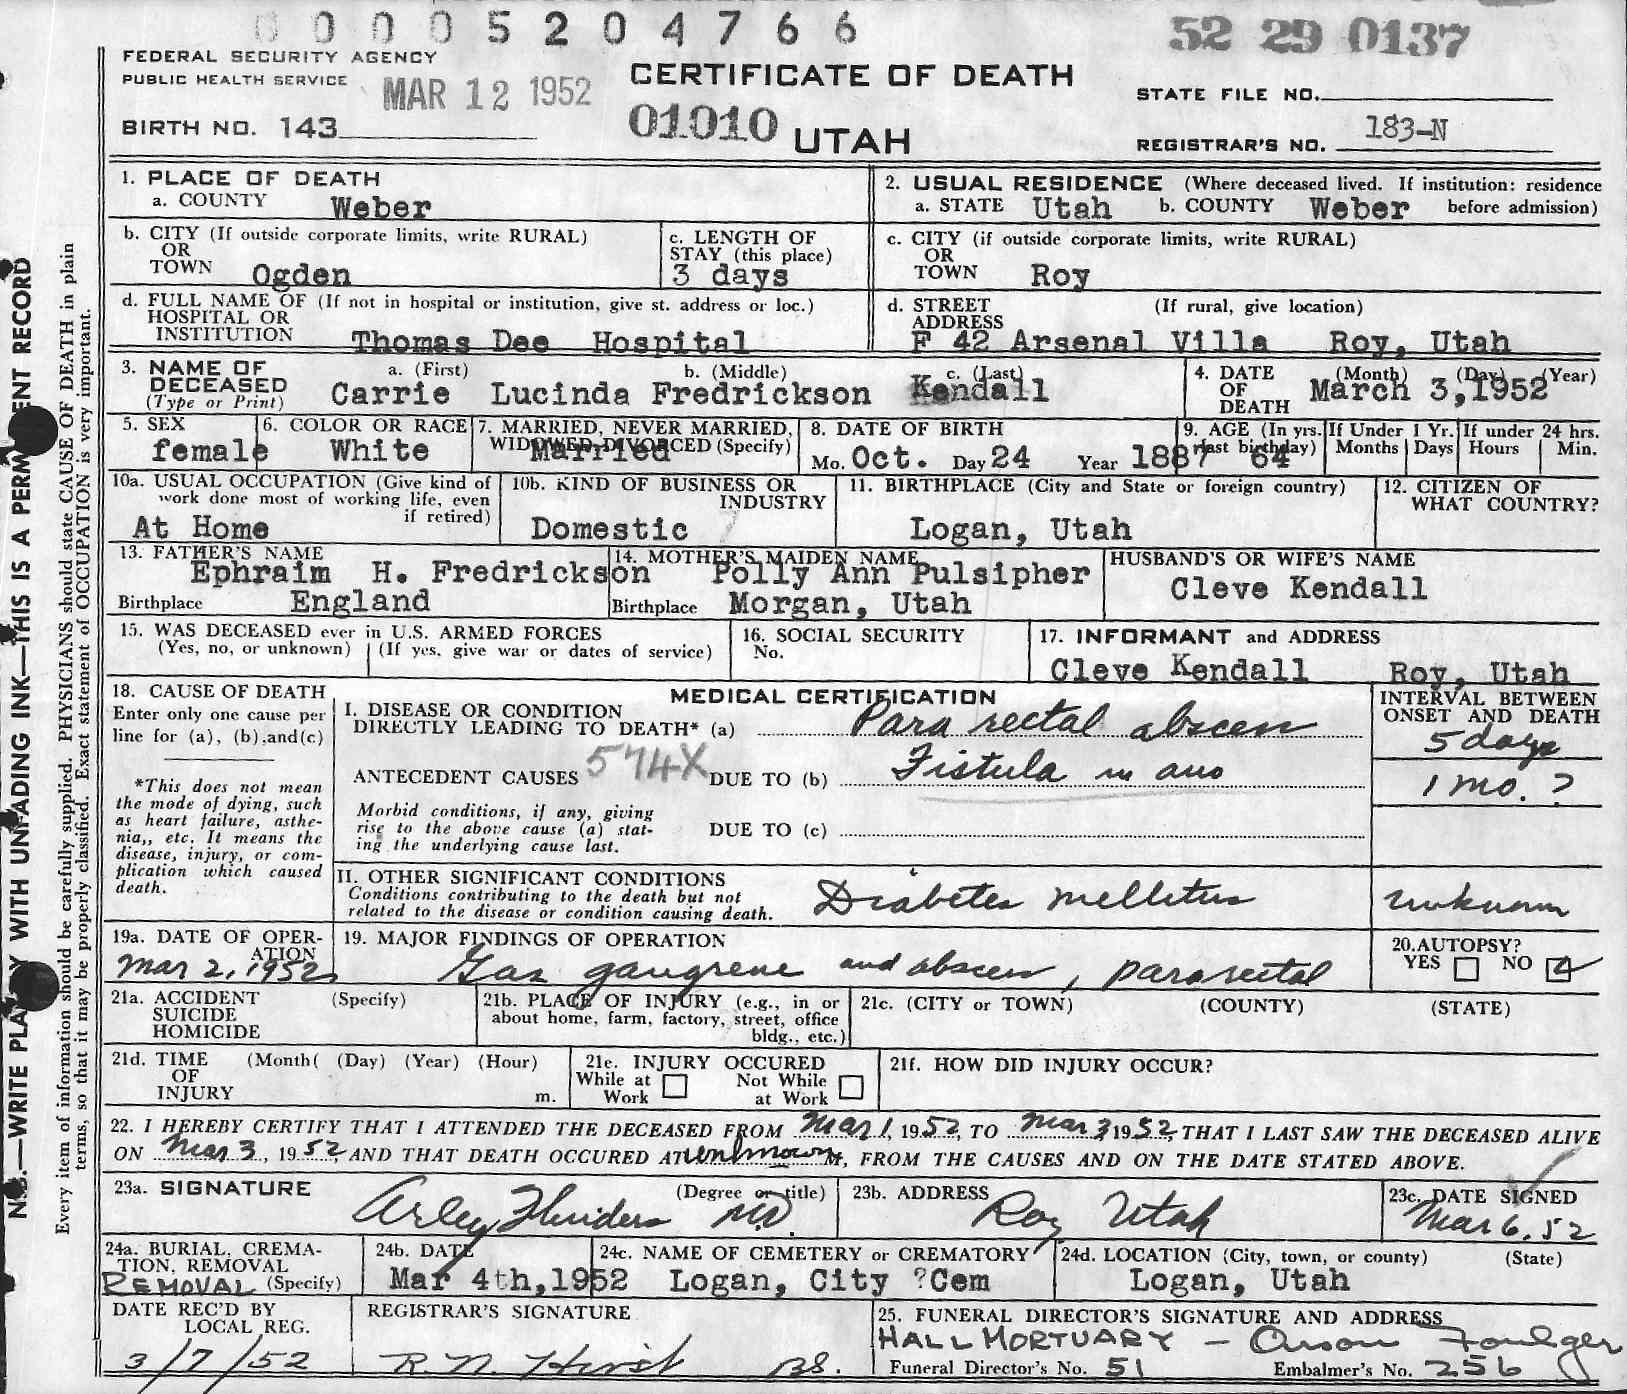 0 0 0 5 2 0 4 7 6 6
52 29 0137
FEDERAL SECURITY AGENCY
PUBLIC HEALTH SERVICE
MAR 12 1952
CERTIFICATE OF DEATH
STATE FILE NO.
BIRTH NO. 143
01010 UTAH
REGISTRAR'S NO. 183-N
1. PLACE OF DEATH
a. COUNTY Weber
2. USUAL RESIDENCE (Where deceased lived. If institution: residence before admission)
a. STATE Utah b. COUNTY Weber
b. CITY (If outside corporate limits, write RURAL)
OR
TOWN Ogden
c. LENGTH OF
STAY (this place)
3 days
c. CITY (if outside corporate limits, write RURAL)
OR
TOWN Roy
d. FULL NAME OF (If not in hospital or institution, give st. address or loc.)
HOSPITAL OR
INSTITUTION Thomas Dee Hospital
d. STREET (If rural, give location)
ADDRESS
F 42 Arsenal Villa Roy, Utah
3. NAME OF a. (First) b. (Middle) c. (Last)
DECEASED
(Type or Print) Carrie Lucinda Fredrickson Kendall
4. DATE (Month) (Day) (Year)
OF
DEATH March 3, 1952
5. SEX
female
6. COLOR OR RACE
White
7. MARRIED, NEVER MARRIED,
WIDOWED, DIVORCED (Specify)
Married
8. DATE OF BIRTH
Mo. Oct. Day 24 Year 1887
9. AGE (In yrs. last birthday)
64
If Under 1 Yr.
Months Days
If under 24 hrs.
Hours Min.
10a. USUAL OCCUPATION (Give kind of
work done most of working life, even
if retired)
At Home
10b. KIND OF BUSINESS OR
INDUSTRY
Domestic
11. BIRTHPLACE (City and State or foreign country)
Logan, Utah
12. CITIZEN OF
WHAT COUNTRY?
13. FATHER'S NAME
Ephraim H. Fredrickson
Birthplace England
14. MOTHER'S MAIDEN NAME
Polly Ann Pulsipher
Birthplace Morgan, Utah
HUSBAND'S OR WIFE'S NAME
Cleve Kendall
15. WAS DECEASED ever in U.S. ARMED FORCES
(Yes, no, or unknown) (If yes, give war or dates of service)
16. SOCIAL SECURITY
No.
17. INFORMANT and ADDRESS
Cleve Kendall Roy, Utah
18. CAUSE OF DEATH
Enter only one cause per
line for (a), (b), and (c)
*This does not mean
the mode of dying, such
as heart failure, asthe-
nia,, etc. It means the
disease, injury, or com-
plication which caused
death.
MEDICAL CERTIFICATION
I. DISEASE OR CONDITION
DIRECTLY LEADING TO DEATH* (a) Para rectal abscess
ANTECEDENT CAUSES 574X DUE TO (b) Fistula in ano
Morbid conditions, if any, giving
rise to the above cause (a) stat-
ing the underlying cause last.
DUE TO (c)
INTERVAL BETWEEN
ONSET AND DEATH
5 days
1 mo. ?
II. OTHER SIGNIFICANT CONDITIONS
Conditions contributing to the death but not
related to the disease or condition causing death.
Diabetes mellitus
unknown
19a. DATE OF OPER-
ATION
Mar 2, 1952
19. MAJOR FINDINGS OF OPERATION
Gas gangrene and abscess, pararectal
20. AUTOPSY?
YES NO
21a. ACCIDENT (Specify)
SUICIDE
HOMICIDE
21b. PLACE OF INJURY (e.g., in or
about home, farm, factory, street, office
bldg., etc.)
21c. (CITY or TOWN) (COUNTY) (STATE)
21d. TIME (Month( (Day) (Year) (Hour)
OF
INJURY m.
21e. INJURY OCCURED
While at Work Not While at Work
21f. HOW DID INJURY OCCUR?
22. I HEREBY CERTIFY THAT I ATTENDED THE DECEASED FROM Mar 1, 1952, TO Mar 3 1952, THAT I LAST SAW THE DECEASED ALIVE
ON Mar 3, 1952, AND THAT DEATH OCCURED AT unknown M, FROM THE CAUSES AND ON THE DATE STATED ABOVE.
23a. SIGNATURE (Degree or title)
Arley Flinders MD.
23b. ADDRESS
Roy Utah
23c. DATE SIGNED
Mar 6. 52
24a. BURIAL, CREMA-
TION, REMOVAL
REMOVAL (Specify)
24b. DATE
Mar 4th, 1952
24c. NAME OF CEMETERY or CREMATORY
Logan, City ?Cem
24d. LOCATION (City, town, or county) (State)
Logan, Utah
DATE REC'D BY
LOCAL REG.
3/7/52
REGISTRAR'S SIGNATURE
R. N. Hirst BS.
25. FUNERAL DIRECTOR'S SIGNATURE AND ADDRESS
HALL MORTUARY - Orson Foulger
Funeral Director's No. 51 Embalmer's No. 256
N.B.—WRITE PLAINLY WITH UNFADING INK—THIS IS A PERMANENT RECORD
Every item of information should be carefully supplied. PHYSICIANS should state CAUSE OF DEATH in plain
terms, so that it may be properly classified. Exact statement of OCCUPATION is very important.